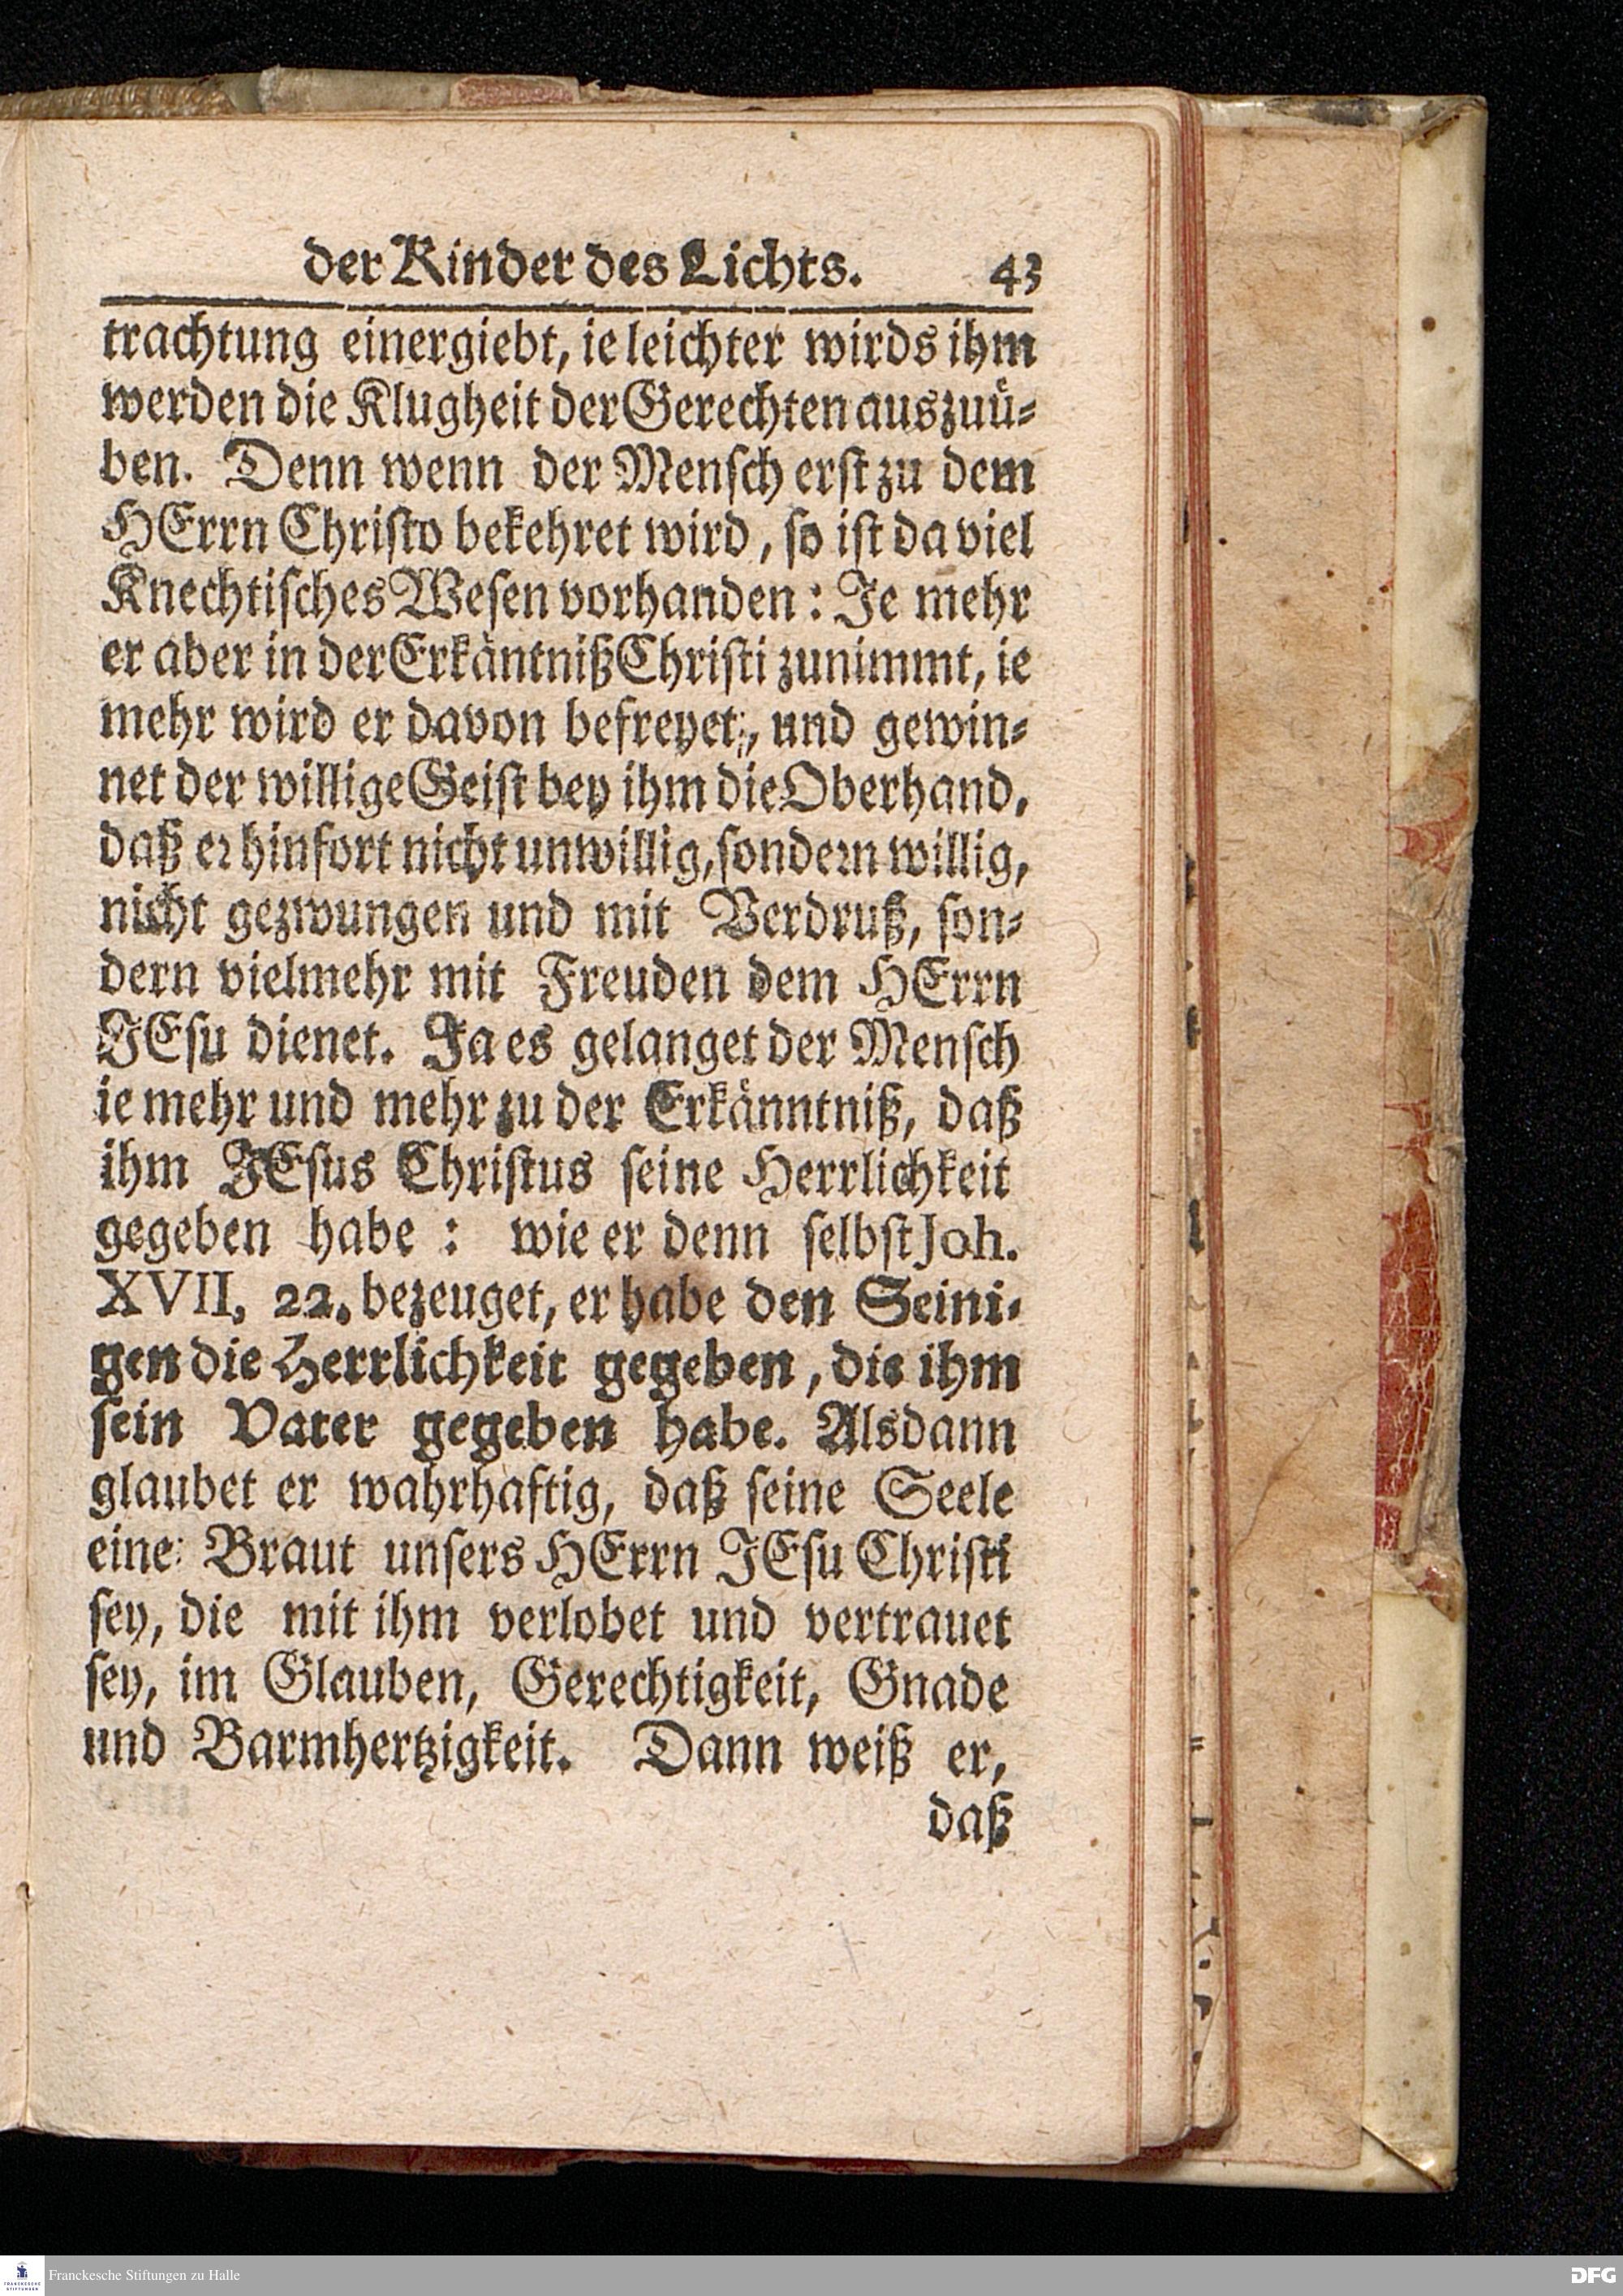 der Kinder des Lichts. 43
trachtung einergiebt, ie leichter wirds ihm
werden die Klugheit der Gerechten auszuü-
ben. Denn wenn der Mensch erst zu dem
HErrn Christo bekehret wird, so ist da viel
Knechtisches Wesen vorhanden: Je mehr
er aber in der Erkäntniß Christi zunimmt, ie
mehr wird er davon befreyet, und gewin-
net der willige Geist bey ihm die Oberhand,
daß er hinfort nicht unwillig, sondern willig,
nicht gezwungen und mit Verdruß, son-
dern vielmehr mit Freuden dem HErrn
JEsu dienet. Ja es gelanget der Mensch
ie mehr und mehr zu der Erkänntniß, daß
ihm JEsus Christus seine Herrlichkeit
gegeben habe: wie er denn selbst Joh.
XVII, 22. bezeuget, er habe den Seini-
gen die Herrlichkeit gegeben, die ihm
sein Vater gegeben habe. Alsdann
glaubet er wahrhaftig, daß seine Seele
eine Braut unsers HErrn JEsu Christi
sey, die mit ihm verlobet und vertrauet
sey, im Glauben, Gerechtigkeit, Gnade
und Barmhertzigkeit. Dann weiß er,
daß
FRANCKESCHE
STIFTUNGEN
Franckesche Stiftungen zu Halle
DFG